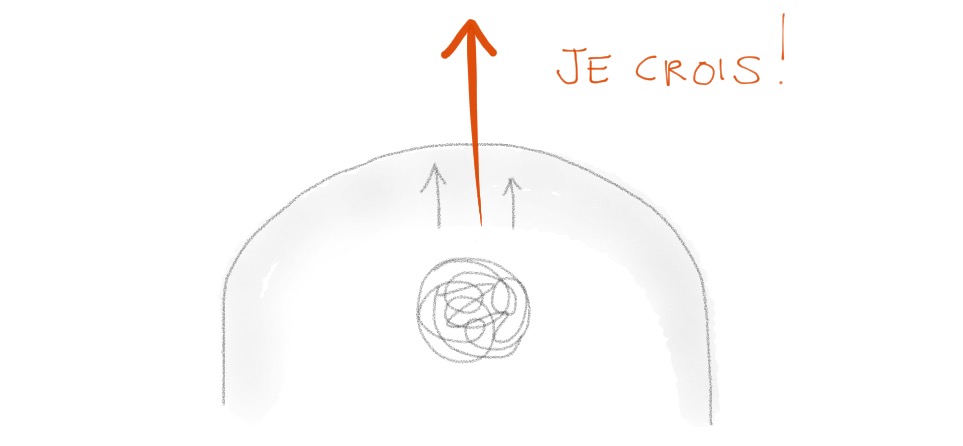 JE CROIS!